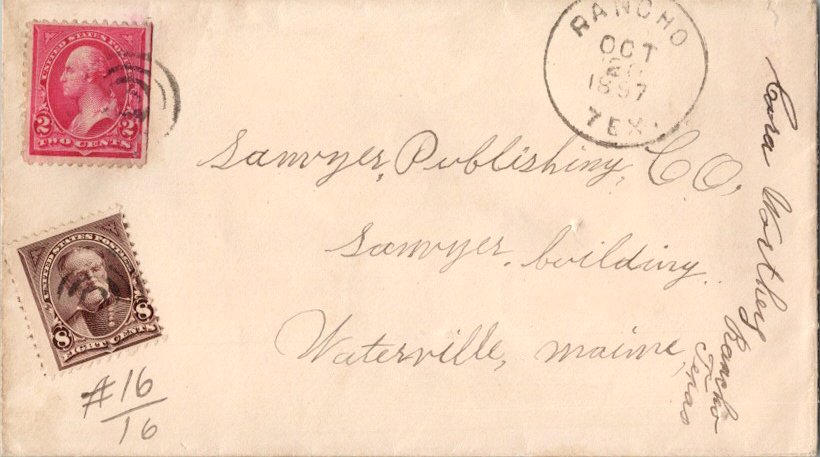 UNITED STATES POSTAGE
2 2
TWO CENTS
RANCHO
OCT
1897
TEX.
Sawyer, Publishing, CO,
Sawyer, building,
Waterville, maine,
UNITED STATES POSTAGE
8 8
EIGHT CENTS
#16
16
Cora
Rancho
Texas